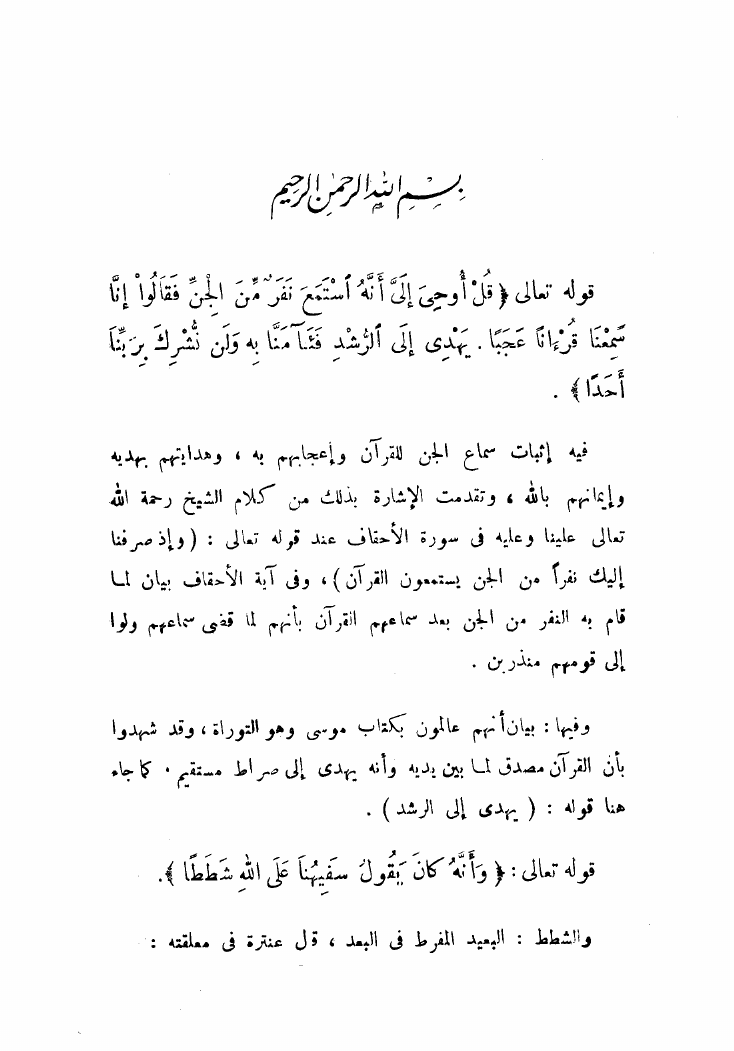 بسم الله الرحمن الرحيم
قوله تعالى ﴿ قُلْ أُوحِىَ إِلَىَّ أَنَّهُ ٱسْتَمَعَ نَفَرٌ مِّنَ الْجِنِّ فَقَالُوا إِنَّا
سَمِعْنَا قُرْءَانًا عَجَبًا . يَهْدِى إِلَى ٱلرُّشْدِ فَـَٔامَنَّا بِهِ وَلَن نُّشْرِكَ بِرَبِّنَا
أَحَدًا ﴾ .
فيه إثبات سماع الجن للقرآن وإعجابهم به ، وهدايتهم بهديه
وإيمانهم بالله ، وتقدمت الإشارة بذلك من كلام الشيخ رحمة الله
تعالى علينا وعليه فى سورة الأحقاف عند قوله تعالى : ( وإذ صرفنا
إليك نفراً من الجن يستمعون القرآن ) ، وفى آية الأحقاف بيان لما
قام به النفر من الجن بعد سماعهم القرآن بأنهم لما قضى سماعهم ولوا
إلى قومهم منذرين .
وفيها : بيان أنهم عالمون بكتاب موسى وهو التوراة ، وقد شهدوا
بأن القرآن مصدق لما بين يديه وأنه يهدى إلى صراط مستقيم . كما جاء
هنا قوله : ( يهدى إلى الرشد ) .
قوله تعالى : ﴿ وَأَنَّهُ كَانَ يَقُولُ سَفِيهُنَا عَلَى اللهِ شَطَطًا ﴾.
والشطط : البعيد المفرط فى البعد ، قل عنترة فى معلقته :